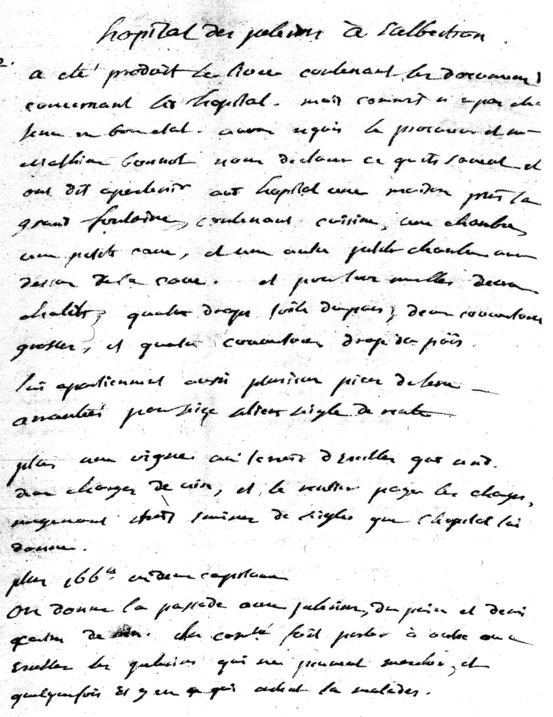 hopital des pelerins à Salbertran
a eté produit le livre contenant les documents
concernant led hopital. mais comme n'a pas
en bon etat. avons requis le procureur et
Mathieu bonnot nous declarer ce qu'ils savent et
ont dit apartenir aud hopital une maison près la
grand fontaine, contenant cuisine, une chambre,
une petite cave, et une autre petite chambre au
dessus de la cave. et pour tous meubles deux
chalits, quatre draps toile du païs, deux couvertures
grosses, et quatre couvertures drap du païs.
lui apartiennent aussi plusieurs pieces de terre
pour seize setiers seigle de rente
plus une vigne au terroir d'Exilles que rend
deux charges de vin, et le rentier paye les charges,
moyenant trois de seigle que l'hopital lui
donne.
plus 166 en deux capitaux
On donne la passade aux pelerins, du pain et demi
de vin. les fait porter à oulx ou a
Exilles les pelerins qui ne peuvent marcher, et
quelquefois il y en a qui la malades.